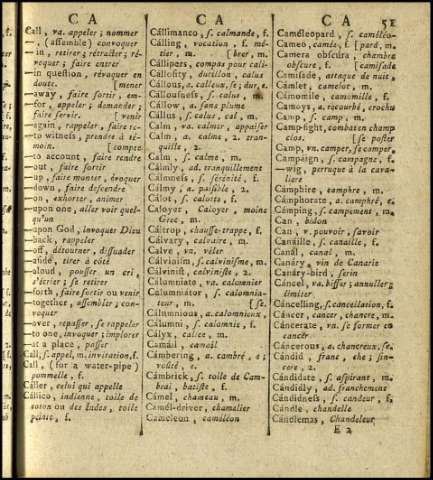 C A
Call, va. appeler; nommer
—, (assemble) convoquer
—in, retirer; rétracter; révoquer; faire entrer
—in question, révoquer en doute. [mener
—away, faire sortir, em-
—for, appeler; demander;
faire servir. [venir
—again, rappeler, faire re-
—to witness, prendre à témoin. [compte
—to account, faire rendre
—out, faire sortir
—up, faire monter, évoquer
—down, faire descendre
—on, exhorter, animer
—upon one, aller voir quelqu'un
—upon God, invoquer Dieu
—back, rappeler
—off, détourner, dissuader
—aside, tirer à côté
—aloud, pousser un cri,
s'écrier; se retirer
—forth, faire sortir ou venir
—together, assembler; convoquer
—over, repasser, se rappeler
—to one, invoquer; implorer
—at a place, passer
Call, s. appel, m. invitation, f.
Call, (for a water-pipe)
pommelle, f.
Cáller, celui qui appelle
Cállico, indienne, toile de
coton ou des Indes, toile
peinte, f.
C A
Cállimanco, s. calmande, f.
Cálling, vocation, f. métier, m. [ber, m.
Cállipers, compas pour cali-
Callosity, durillon, calus
Cállous, a. calleux, se; dur, e.
Cállousness, s. calus, m.
Cállow, a. sans plume
Cállus, s. calus, cal, m.
Calm, va. calmer, appaiser
Calm, a. calme, 2. tranquille, 2.
Calm, s. calme, m.
Cálmly, ad. tranquillement
Cálmness, s. sérénité, f.
Cálmy, a. paisible, 2.
Cálot, s. calotte, f.
Caloyer, Caloyer, moine
Grec, m.
Cáltrop, chausse-trappe, f.
Cálvary, calvaire, m.
Calve, va. vêler
Cálvinism, s. calvinisme, m.
Cálvinist, calviniste, 2.
Calúmniate, va. calomnier
Calumniátor, s. calomniateur, m. [se.
Calúmnious, a. calomnieux,
Cálumni, s. calomnie, f.
Cályx, calice, m.
Camáil, camail
Cámbering, a. cambré, e;
voûté, e.
Cámbrick, s. toile de Cambrai, batiste, f.
Cámel, chameau, m.
Camél-driver, chamelier
Cameleon, caméléon
C A 51
Caméleopard, s. caméléo-
Cameo, camée, f. [pard, m.
Camera obscura, chambre
obscure, f. [camisade
Camisade, attaque de nuit,
Cámlet, camelot, m.
Cámomile, camomille, f.
Camoys, a. recourbé, crochu
Camp, s. camp, m.
Campfight, combat en champ
clos. [se poster
Camp, vn. camper, se camper,
Campáign, s. campagne, f.
—wig, perruque à la cavalière
Cámphire, camphre, m.
Cámphorate, a. camphré, e.
Cámping, s. campement, m.
Can, bidon
Can, v. pouvoir, savoir
Canáille, s. canaille, f.
Canál, canal, m.
Canáry, vin de Canarie
Canáry-bird, serin
Cáncel, va. biffer; annuller;
limiter
Cáncelling, s. cancellation, f.
Cáncer, cancer, chancre, m.
Cáncerate, vn. se former en
cancer
Cáncerous, a. chancreux, se.
Cándid, franc, che; sincère, 2.
Cándidate, s. aspirant, m.
Cándidly, ad. franchement
Cándidness, s. candeur, f.
Cándle, chandelle
Cándlemas, Chandeleur
E 2